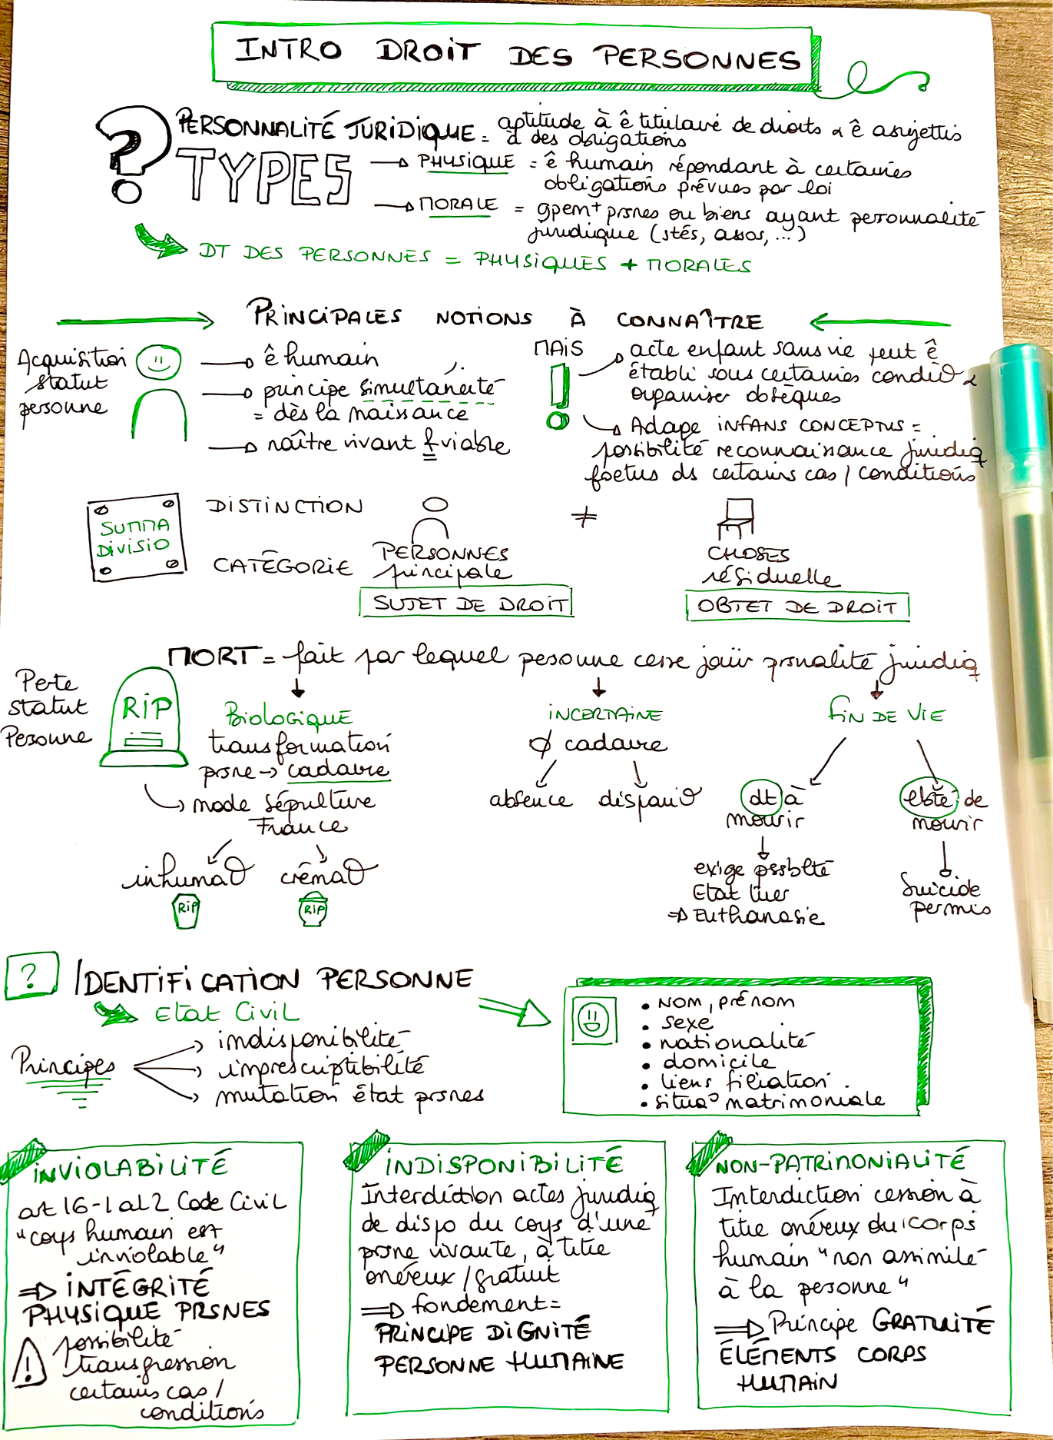 INTRO DROIT DES PERSONNES
?
PERSONNALITÉ JURIDIQUE = aptitude à ê titulaire de droits & ê assujettis
à des obligations
TYPES
→ PHYSIQUE = ê humain répondant à certaines
obligations prévues par loi
→ MORALE = gpemt prsnes ou biens ayant personnalité
juridique (stés, assos, ...)
DT DES PERSONNES = PHYSIQUES + MORALES
PRINCIPALES NOTIONS À CONNAÎTRE
Acquisition
statut
personne
→ ê humain
→ principe simultanéité
= dès la naissance
→ naître vivant & viable
MAIS
!
acte enfant sans vie peut ê
établi sous certaines condit° &
organiser obsèques
Adage INFANS CONCEPTUS =
possibilité reconnaissance juridiq
foetus ds certains cas / conditions
SUMMA
DIVISIO
DISTINCTION
≠
CATÉGORIE
PERSONNES
principale
SUJET DE DROIT
CHOSES
résiduelle
OBJET DE DROIT
MORT = fait par lequel personne cesse jouir prsnalité juridiq
Perte
statut
Personne
RIP
Biologique
transformation
prsne → cadavre
→ mode sépulture
France
inhumat° crémat°
RIP RIP
INCERTAINE
∅ cadavre
absence disparit°
FIN DE VIE
dt à
mourir
exige pssblté
Etat tuer
⇒ Euthanasie
lbté de
mourir
Suicide
permis
?
IDENTIFICATION PERSONNE
Etat Civil
Principes
indisponibilité
imprescriptibilité
mutation état prsnes
• NOM, PRÉNOM
• sexe
• nationalité
• domicile
• liens filiation
• situa° matrimoniale
INVIOLABILITÉ
art 16-1 al 2 Code Civil
"corps humain est
inviolable"
⇒ INTÉGRITÉ
PHYSIQUE PRSNES
! possibilité
transgression
certains cas /
conditions
INDISPONIBILITÉ
Interdiction actes juridiq
de dispo du corps d'une
prsne vivante, à titre
onéreux / gratuit
⇒ fondement =
PRINCIPE DIGNITÉ
PERSONNE HUMAINE
NON-PATRIMONIALITÉ
Interdiction cession à
titre onéreux du corps
humain "non assimilé
à la personne"
⇒ Principe GRATUITÉ
ÉLÉMENTS CORPS
HUMAIN